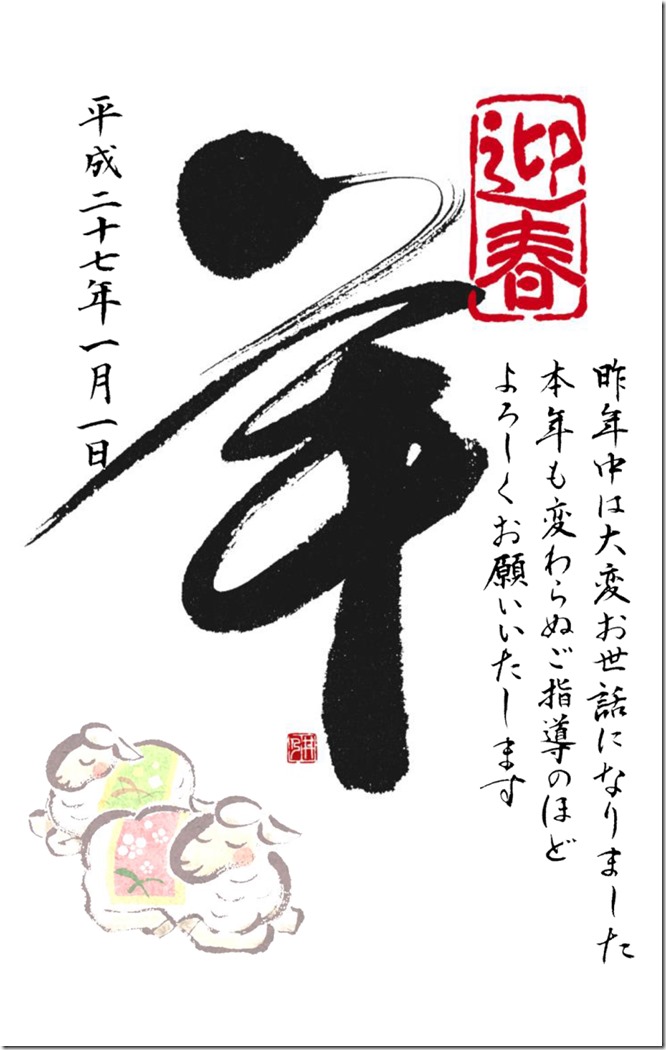 迎春
昨年中は大変お世話になりました
本年も変わらぬご指導のほど
よろしくお願いいたします
羊
平成二十七年一月一日